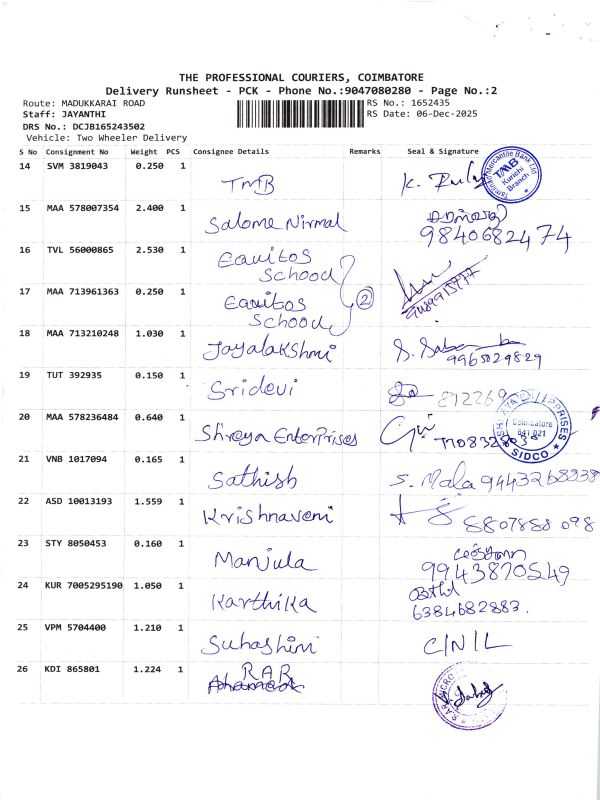 THE PROFESSIONAL COURIERS, COIMBATORE
Delivery Runsheet - PCK - Phone No.:9047080280 - Page No.:2
Route: MADUKKARAI ROAD
RS No.: 1652435
Staff: JAYANTHI
RS Date: 06-Dec-2025
DRS No.: DCJB165243502
Vehicle: Two Wheeler Delivery
S No Consignment No Weight PCS Consignee Details Remarks Seal & Signature
14 SVM 3819043 0.250 1 TMB K.
Tamilnad Mercantile Bank Ltd
TMB
Kurichi
Branch
15 MAA 578007354 2.400 1 Salome Nirmal
9840682474
16 TVL 56000865 2.530 1 Eauitos
School
17 MAA 713961363 0.250 1 Eauitos
School
2
18 MAA 713210248 1.030 1 Jayalakshmi S.
9965029829
19 TUT 392935 0.150 1 Sridevi 812269
20 MAA 578236484 0.640 1 Shreya Enterprises
Coimbatore
641 021
SIDCO
21 VNB 1017094 0.165 1 Sathish S. Mala 9443268838
22 ASD 10013193 1.559 1 Krishnaveni
8807888 098
23 STY 8050453 0.160 1 Manjula
9943870549
24 KUR 7005295190 1.050 1 Karthika
6384682883.
25 VPM 5704400 1.210 1 Suhashini C/N/L
26 KDI 865801 1.224 1 RAR